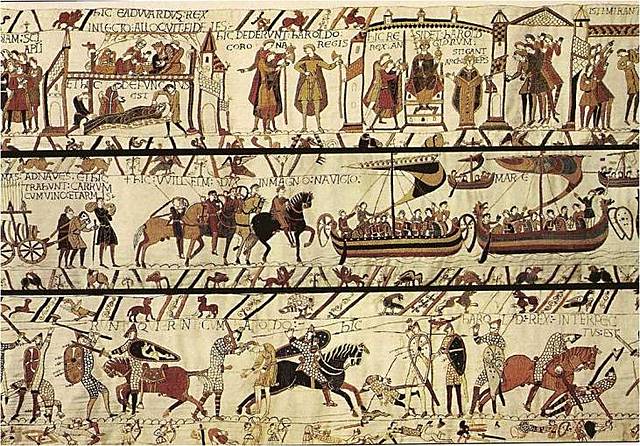 HIC EADVVARDVS:REX
IN LECTO:ALLOQVIT:FIDELES:
ET HIC:DEFVNCTVS
EST
HIC DEDERVNT:HAROLDO:
CORONA REGIS
HIC RE SIDET:HAROLD
REX:AN GLORVM:
STIGANT
ARCHIEPS
ISTI MIRANT
AD NAVES:ET HIC
TRAHVNT:CARRVM
CVM VINO:ET ARMIS
HIC:WILLELM:DVX
IN MAGNO:NAVIGIO:
MARE
CVM HAROLDO:
HIC HAROLD:REX:INTERFEC
TVS:EST